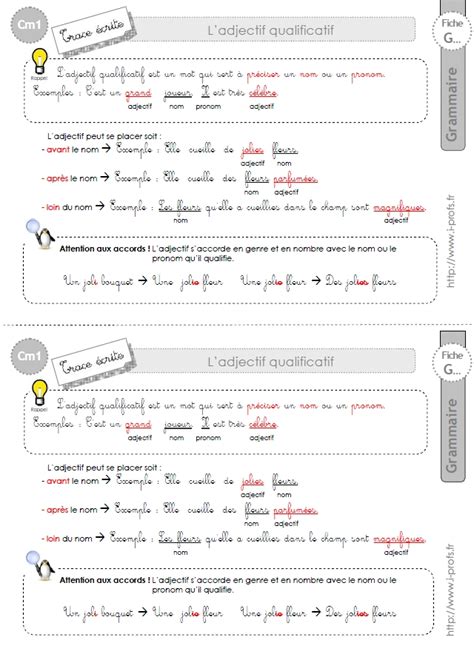 Cm1
Trace écrite
L'adjectif qualificatif
Fiche
G...
Grammaire
http://www.i-profs.fr
Rappel
L'adjectif qualificatif est un mot qui sert à préciser un nom ou un pronom.
Exemples : C'est un grand joueur. Il est très célèbre.
adjectif nom pronom adjectif
L'adjectif peut se placer soit :
- avant le nom → Exemple : Elle cueille de jolies fleurs.
adjectif nom
- après le nom → Exemple : Elle cueille des fleurs parfumées.
nom adjectif
- loin du nom → Exemple : Les fleurs qu'elle a cueillies dans le champ sont magnifiques.
nom adjectif
Attention aux accords ! L'adjectif s'accorde en genre et en nombre avec le nom ou le
pronom qu'il qualifie.
Un joli bouquet → Une jolie fleur Une jolie fleur → Des jolies fleurs
Cm1
Trace écrite
L'adjectif qualificatif
Fiche
G...
Grammaire
http://www.i-profs.fr
Rappel
L'adjectif qualificatif est un mot qui sert à préciser un nom ou un pronom.
Exemples : C'est un grand joueur. Il est très célèbre.
adjectif nom pronom adjectif
L'adjectif peut se placer soit :
- avant le nom → Exemple : Elle cueille de jolies fleurs.
adjectif nom
- après le nom → Exemple : Elle cueille des fleurs parfumées.
nom adjectif
- loin du nom → Exemple : Les fleurs qu'elle a cueillies dans le champ sont magnifiques.
nom adjectif
Attention aux accords ! L'adjectif s'accorde en genre et en nombre avec le nom ou le
pronom qu'il qualifie.
Un joli bouquet → Une jolie fleur Une jolie fleur → Des jolies fleurs